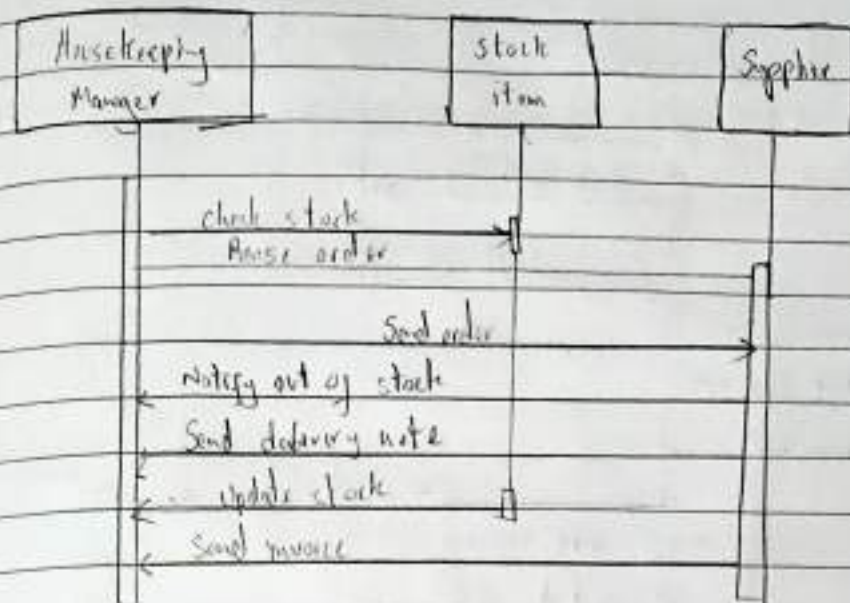 Housekeeping
Manager
Stock
item
Supplier
Check stock
Raise order
Send order
Notify out of stock
Send delivery note
update stock
Send invoice